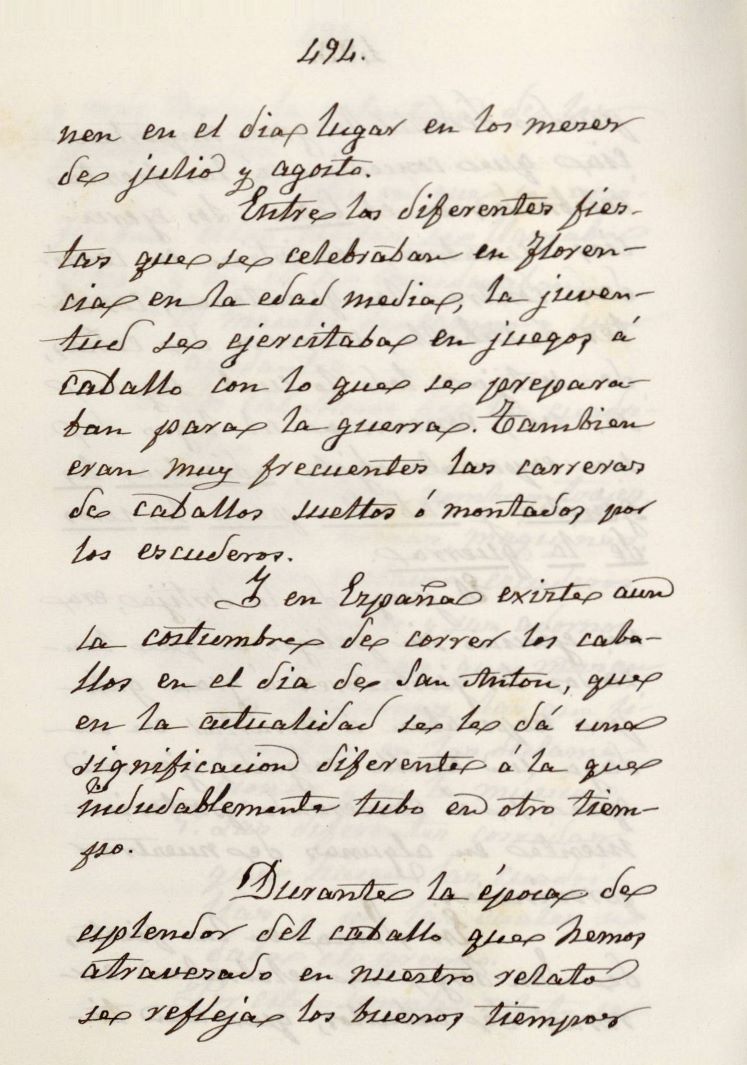 494.
nen en el dia lugar en los meses
de julio y agosto.
Entre las diferentes fies-
tas que se celebraban en Floren-
cia en la edad media, la juven-
tud se ejercitaba en juegos á
caballo con lo que se prepara-
ban para la guerra. Tambien
eran muy frecuentes las carreras
de caballos sueltos ó montados por
los escuderos.
Y en España existe aun
la costumbre de correr los caba-
llos en el dia de San Anton, que
en la actualidad se le dá una
significacion diferente á la que
indudablemente tubo en otro tiem-
po.
Durante la época de
esplendor del caballo que hemos
atravesado en nuestro relato
se refleja los buenos tiempos